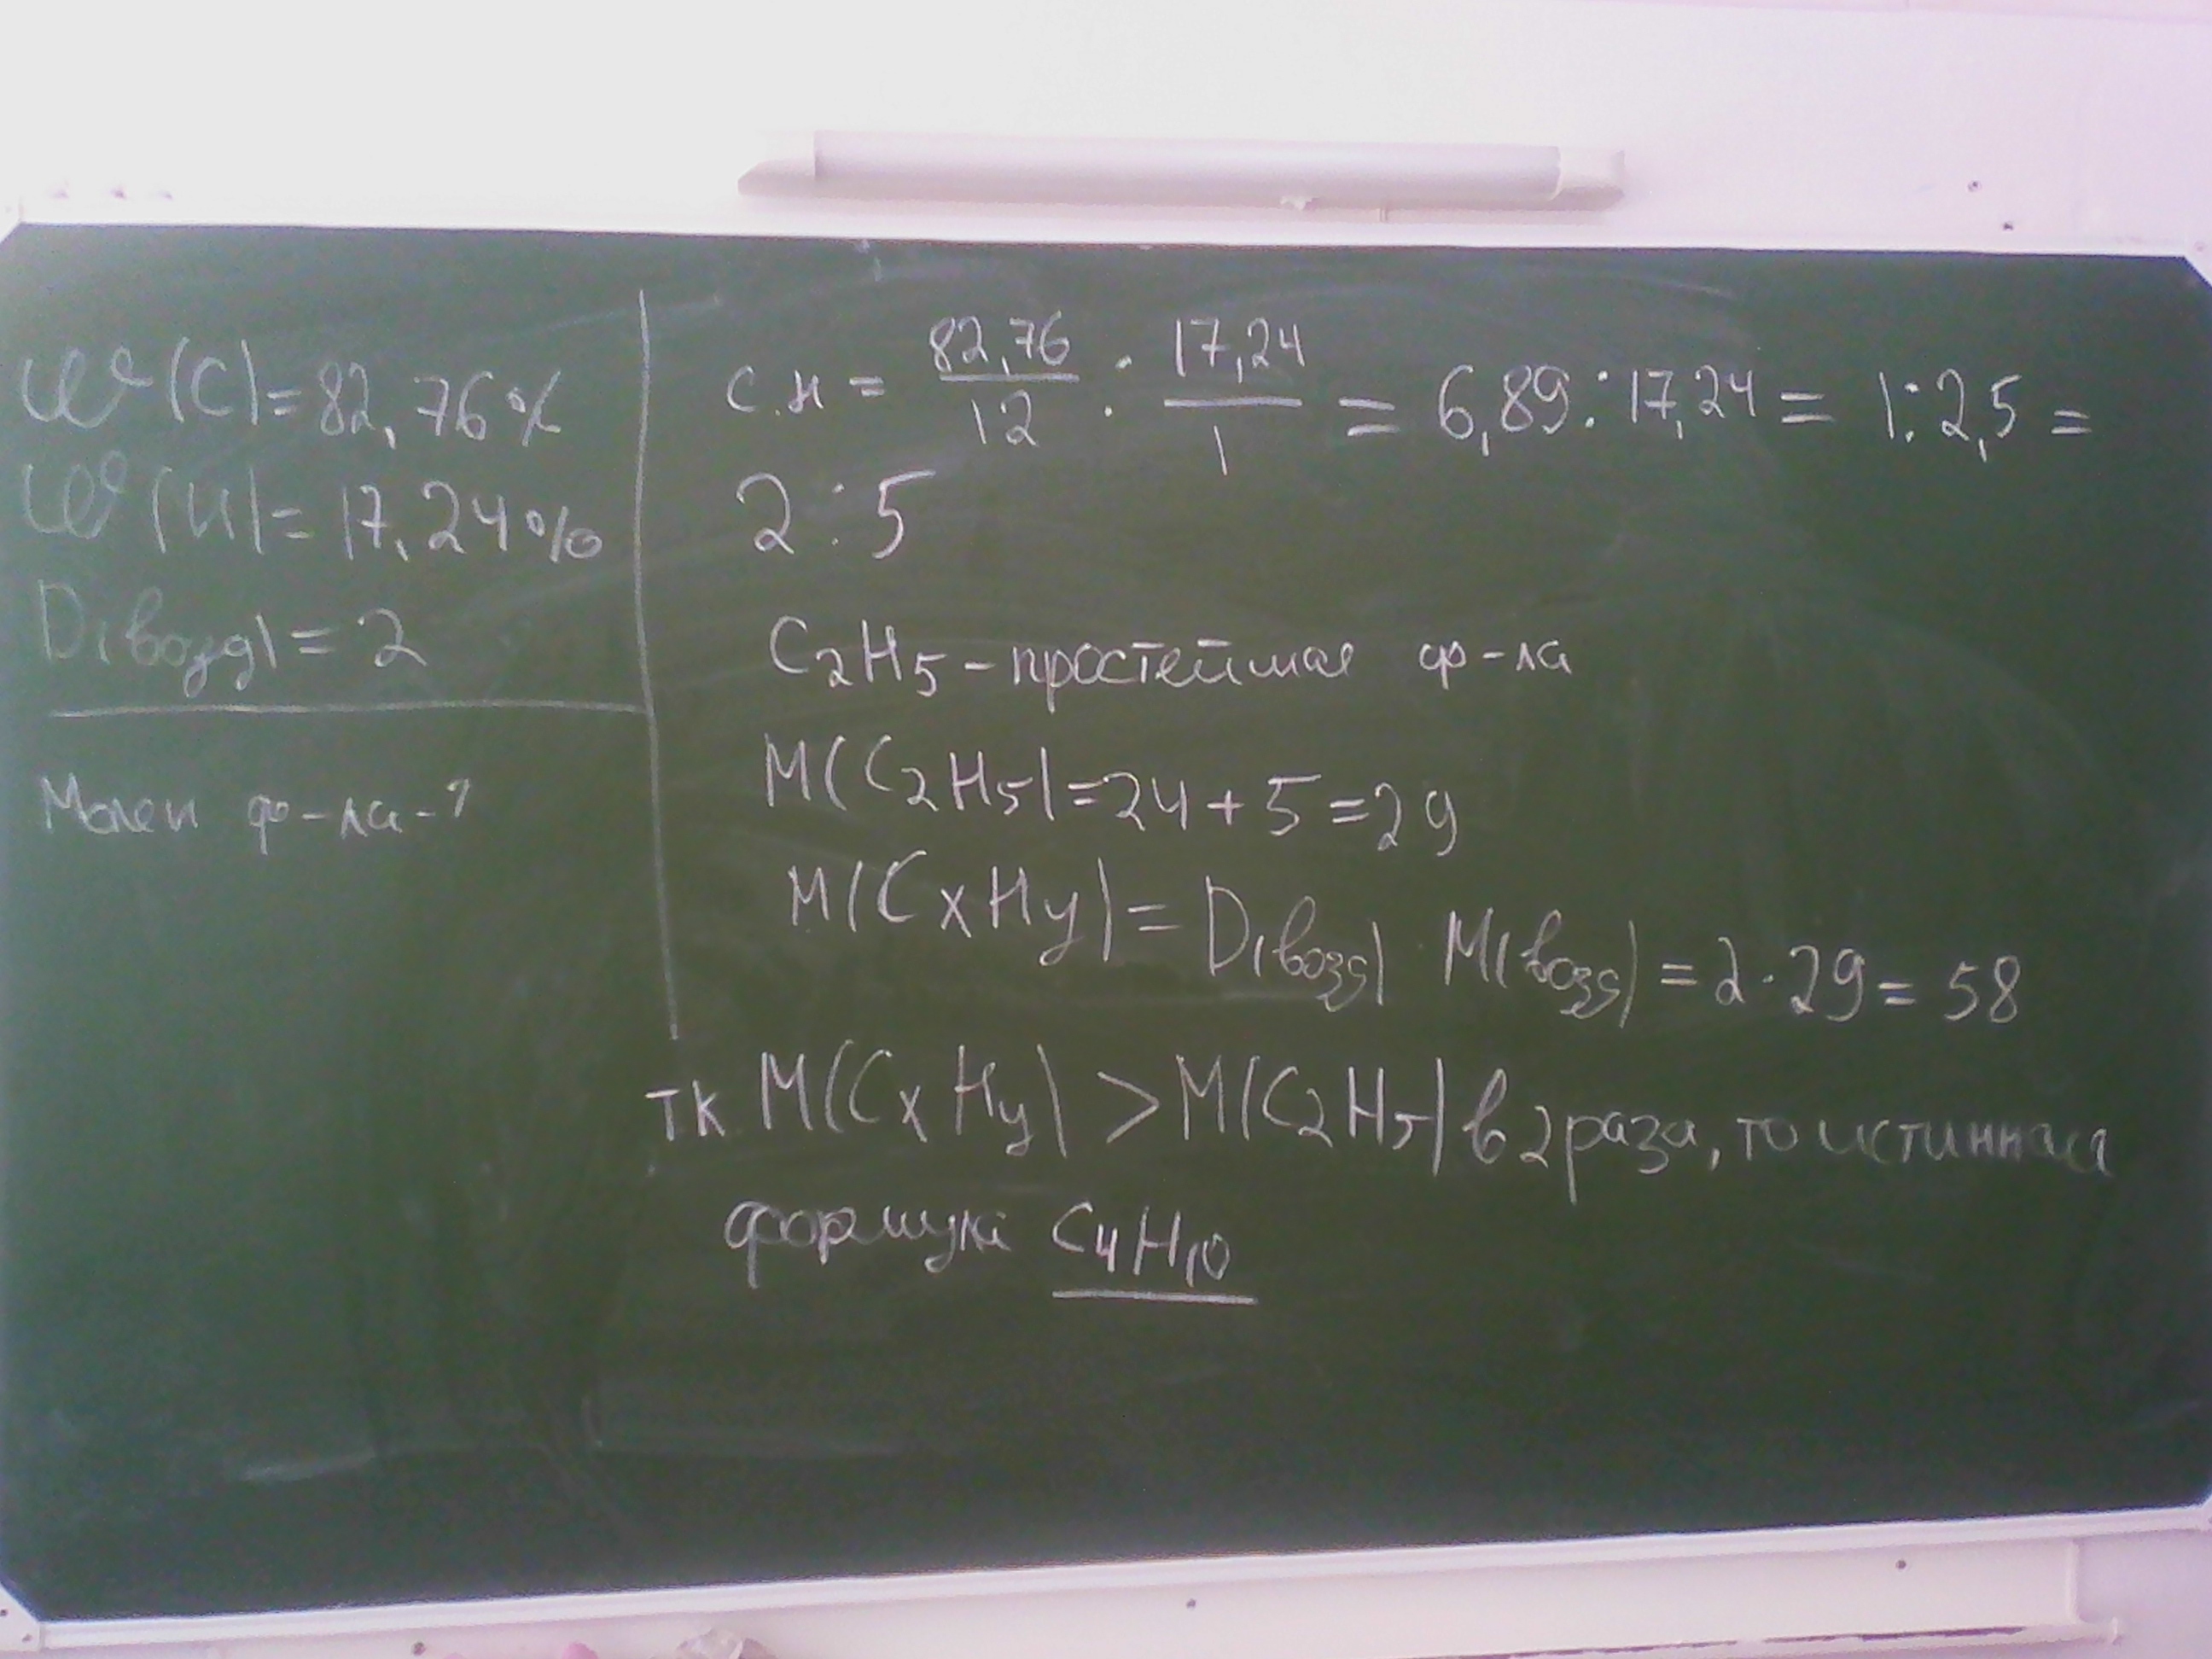 W(C)=82,76%
W(H)=17,24%
D(возд)=2
Молек ф-ла-?
C:H = 82,76/12 : 17,24/1 = 6,89:17,24 = 1:2,5 =
2:5
C₂H₅-простейшая ф-ла
M(C₂H₅)=24+5=29
M(CxHy)=D(возд) · M(возд)=2·29=58
тк M(CxHy)>M(C₂H₅) в 2 раза, то истинная
формула C₄H₁₀